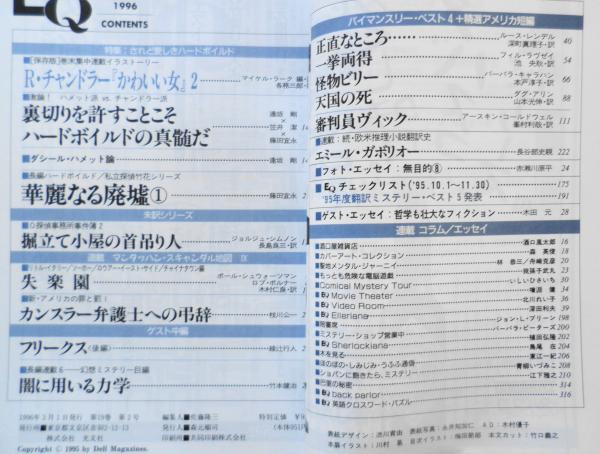 EQ
1996
CONTENTS
特集:されど愛しきハードボイルド
■[保存版]巻末集中連載イラストーリー
R・チャンドラー『かわいい女』2
マイケル・ラーク 編・
各務三郎・
■激論! ハメット派 vs. チャンドラー派
裏切りを許すことこそ
ハードボイルドの真髄だ
逢坂 剛
×
笠井 潔
×
藤田宜永
■ダシール・ハメット論
逢坂 剛
■長編ハードボイルド/私立探偵竹花シリーズ
華麗なる廃墟①
藤田宜永
未訳シリーズ
■O探偵事務所事件簿2
掘立て小屋の首吊り人
ジョルジュ・シムノン
長島良三・訳
連載 マンハッタン・スキャンダル地図 Ⅸ
■リトル・イタリー/ソーホー/ロウアー・イースト・サイド/チャイナタウン編
失楽園
ポール・シュウォーツマン
ロブ・ポルナー
木村仁良・訳
■新・アメリカの罪と罰
カンスラー弁護士への弔辞
枝川公一
ゲスト中編
フリークス〈後編〉
綾辻行人
■長編連載6――幻想ミステリー巨編
闇に用いる力学
竹本健治
1996年3月1日発行 第19巻 第2号
発行所■東京都文京区音羽2-12-13
株式会社 光文社
Copyright © 1995 by Dell Magazines.
編集人■佐藤隆三
発行人■森元順司
印刷所■共同印刷株式会社
特別定価
バイマンスリー・ベスト4+精選アメリカ短編
正直なところ……
ルース・レンデル
深町眞理子・訳
40
一挙両得
フィル・ラヴゼイ
池 央耿・訳
54
怪物ビリー
バーバラ・キャラハン
本戸淳子・訳
66
天国の死
ダグ・アリン
山本光伸・訳
88
審判員ヴィック
アースキン・コールドウェル
峯村利哉・訳
111
■連載:続・欧米推理小説翻訳史
エミール・ガボリオー
長谷部史親
222
■フォト・エッセイ:無目的⑧
赤瀬川原平
24
■EQチェックリスト('95.10.1〜11.30)
175
'95年度翻訳ミステリー・ベスト5発表
191
■ゲスト・エッセイ:哲学も壮大なフィクション
木田 元
28
連載 コラム/エッセイ
■酒口屋雑貨店
酒口風太郎
16
■カバーアート・コレクション
森 英俊
18
■聖地メンタル・ジャーニイ
20
■もっとも危険な電脳遊戯
我孫子武丸
23
■Comical Mystery Tour
いしいひさいち
30
■EQ Movie Theater
34
■EQ Video Room
北川れい子
36
■EQ Elleriana
深田利夫
39
■陪審席
ジョン・L・ブリーン
198
■ミステリー・ショップ営業中
バーバラ・ピーターズ
200
■EQ Sherlockiana
植田弘隆
202
■木を見る
鳥尾 在
204
■ほのぼの・しみじみ・うふふ通信
東江一紀
206
■ショパンに飽きたら、ミステリー
青柳いづみこ
208
■巴里の秘密
江下雅之
210
■EQ back parlor
314
■EQ 英語クロスワード・パズル
316
表紙デザイン:渋川育由
表紙写真:永井知加仁
AD:木村優子
本扉イラスト:川村 易
目次イラスト:梅田範郎
本文カット:竹口義之